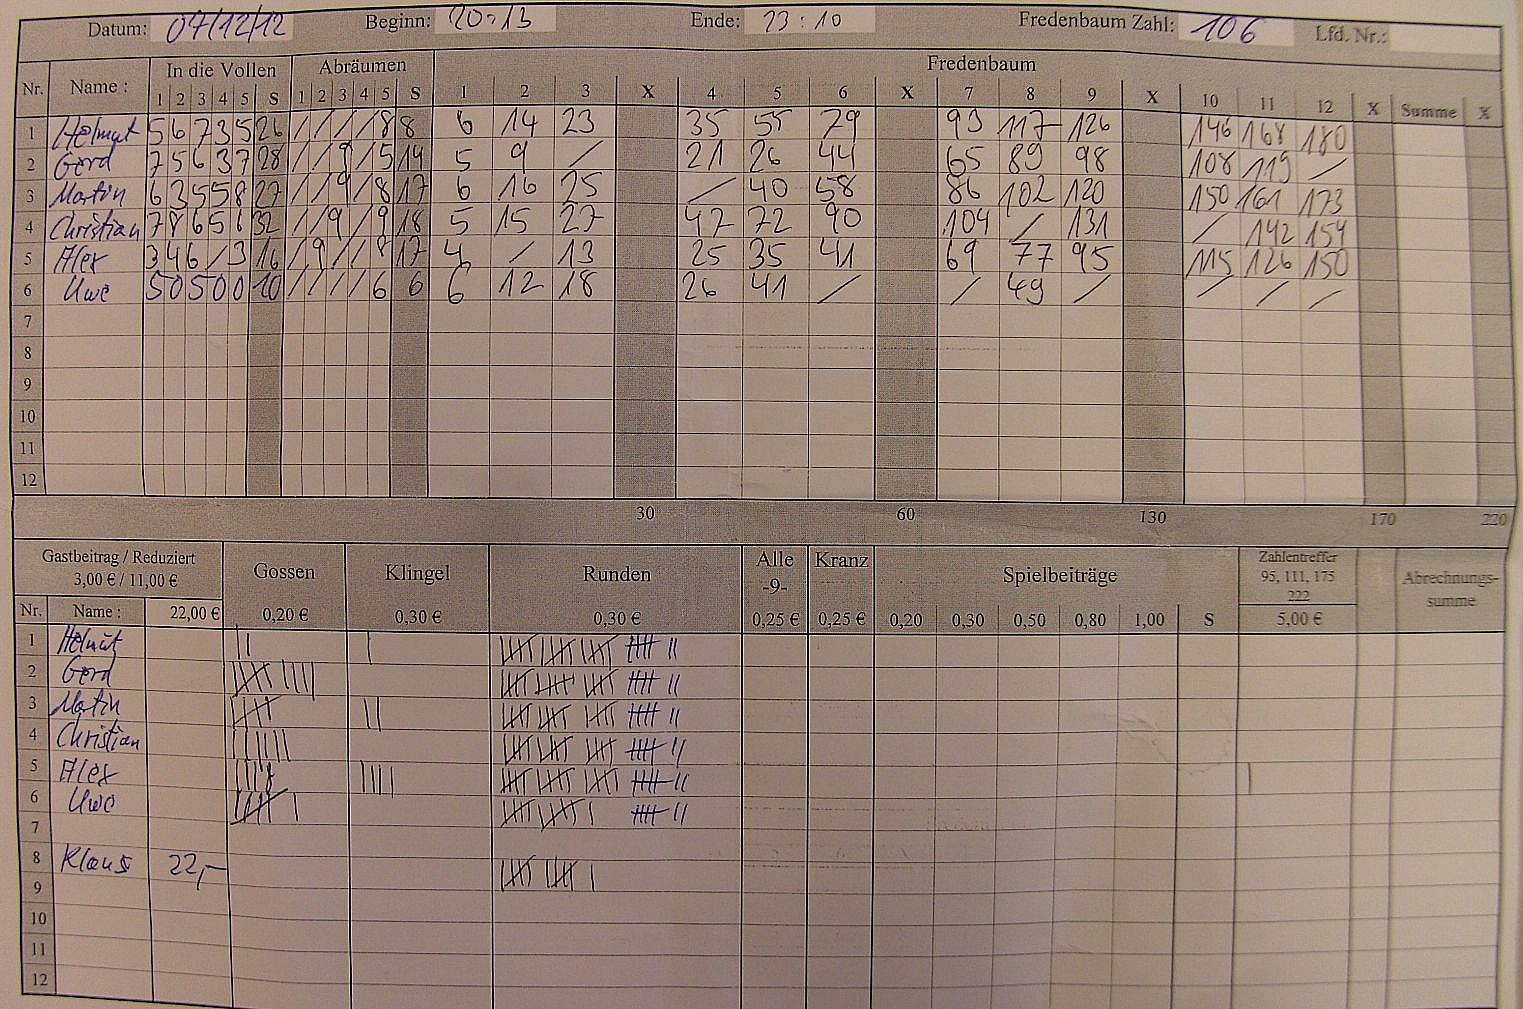 Datum: 07/12/12 Beginn: 20:13 Ende: 23:10 Fredenbaum Zahl: 106 Lfd. Nr.:
Nr. Name : In die Vollen Abräumen Fredenbaum
1 2 3 4 5 S 1 2 3 4 5 S 1 2 3 X 4 5 6 X 7 8 9 X 10 11 12 X Summe X
1 Helmut 5 6 7 3 5 26 / / / / 8 8 6 14 23 35 55 79 93 117 126 146 168 180
2 Gerd 7 5 6 3 7 28 / / 9 / 5 14 5 9 / 21 26 44 65 89 98 108 119 /
3 Martin 6 3 5 5 8 27 / / 9 / 8 17 6 16 25 / 40 58 86 102 120 150 161 173
4 Christian 7 8 6 5 6 32 / / 9 / 9 18 5 15 27 47 72 90 104 / 131 / 142 154
5 Alex 3 4 6 / 3 16 / 9 / / 8 17 4 / 13 25 35 41 69 77 95 115 126 150
6 Uwe 5 0 5 0 0 10 / / / / 6 6 6 12 18 26 41 / / 49 / / / /
7
8
9
10
11
12
30 60 130 170 220
Gastbeitrag / Reduziert Gossen Klingel Runden Alle Kranz Spielbeiträge Zahlentreffer Abrechnungs-
3,00 € / 11,00 € -9- 95, 111, 175 summe
222
Nr. Name : 22,00 € 0,20 € 0,30 € 0,30 € 0,25 € 0,25 € 0,20 0,30 0,50 0,80 1,00 S 5,00 €
1 Helmut
2 Gerd
3 Martin
4 Christian
5 Alex
6 Uwe
7
8 Klaus 22,-
9
10
11
12